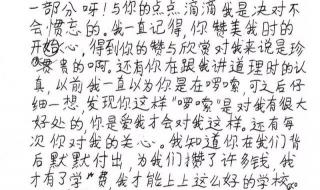 一部分呀！与你的点点滴滴我是决对不
会惯忘的。我一直记得，你赞美我时的
开心，得到你的赞与欣赏对我来说是珍
贵的啊。还有你在跟我讲道理时的认
真，以前我一直以为你是在啰索，可之后仔
细一想发现你这样“啰索”是对我有很大
好处的，你是爱我才会对我这样。还有每
次你对我的关心。我知道你在我们背
后默默付出，为我们攒了许多钱，我
才有了学费，我才能上上这么好的学校。